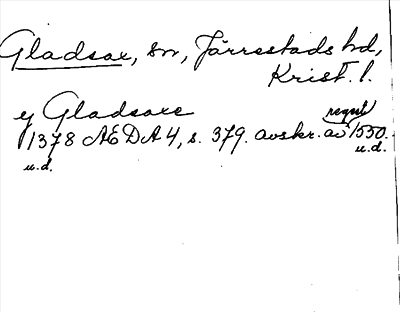 Gladsax, sn, Järrestads hd,
Krist. l.
y Gladsaxe
regest
1378 AEDA 4, s. 379. avskr. av 1550.
u.d.
u.d.